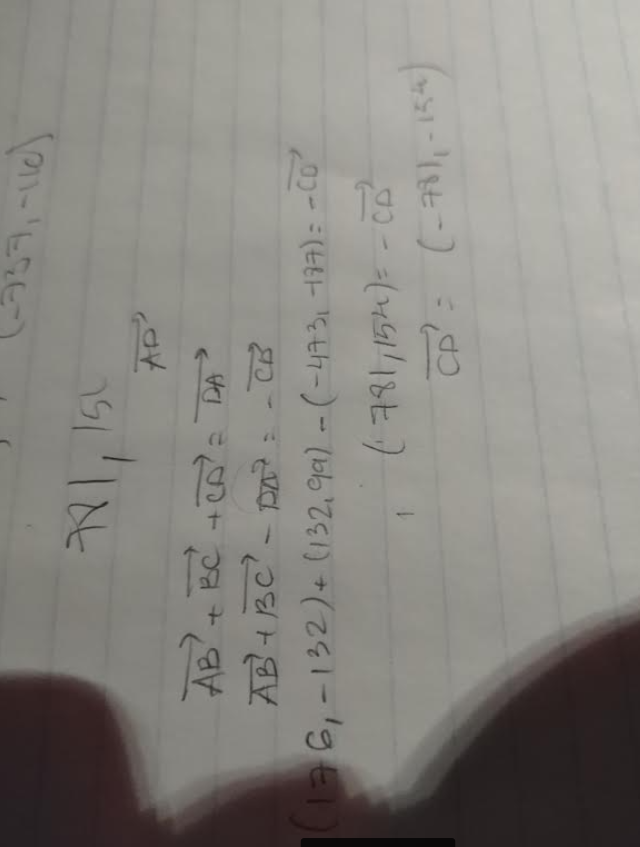 (-737, -110)
781, 15
AD
AB + BC + CD = DA
AB + BC - DA = -CD
(176, -132) + (132, 99) - (-473, -187) = -CD
(781, 154) = -CD
CD = (-781, -154)